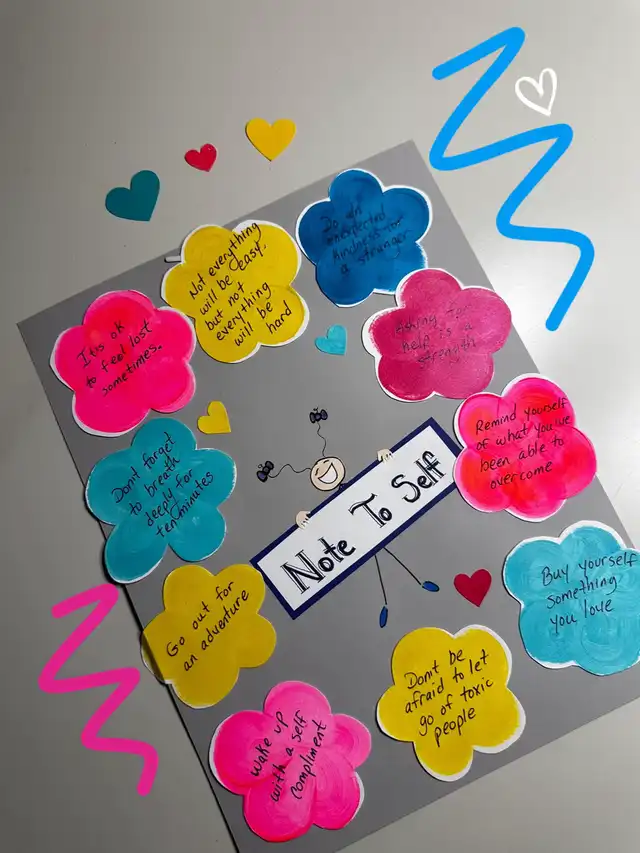 Do an
unexpected
kindness for
a stranger
Not everything
will be easy,
but not
everything
will be
hard
Asking for
help is a
strength
It is ok
to feel lost
sometimes.
Remind yourself
of what you've
been able to
overcome
Don't forget
to breath
deeply for
ten minutes
Note To Self
Buy yourself
something
you love
Go out for
an adventure
Don't be
afraid to let
go of toxic
people
Wake up
with a self
compliment